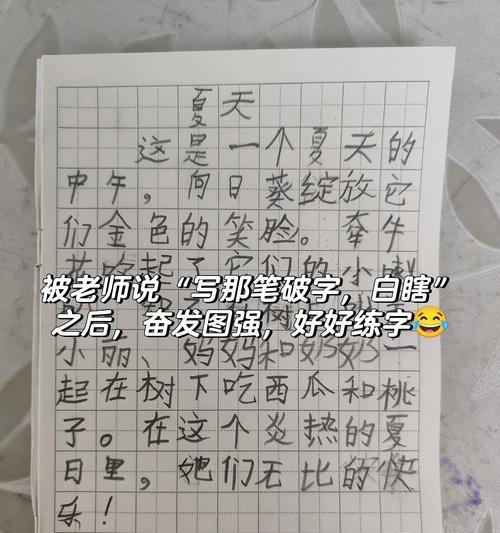 夏天
这是一个夏天的
中午，向日葵绽放它
们金色的笑脸。牵牛
花吹起了它们的小喇
被老师说“写那笔破字，白瞎”
之后，奋发图强，好好练字😂
树
小丽、妈妈和奶奶一
起在树下吃西瓜和桃
子。在这个炎热的夏
日里，她们无比的快
乐！